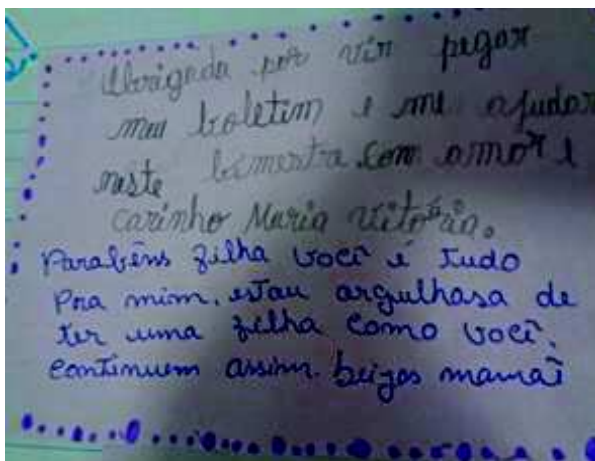 Obrigada por vin pegar
meu boletim e me ajudar
neste bimestra com amor e
carinho Maria Vitória.
Parabéns filha você é tudo
Pra mim. estou argulhasa de
ter uma filha como você.
continuem assim. beizos mamãe